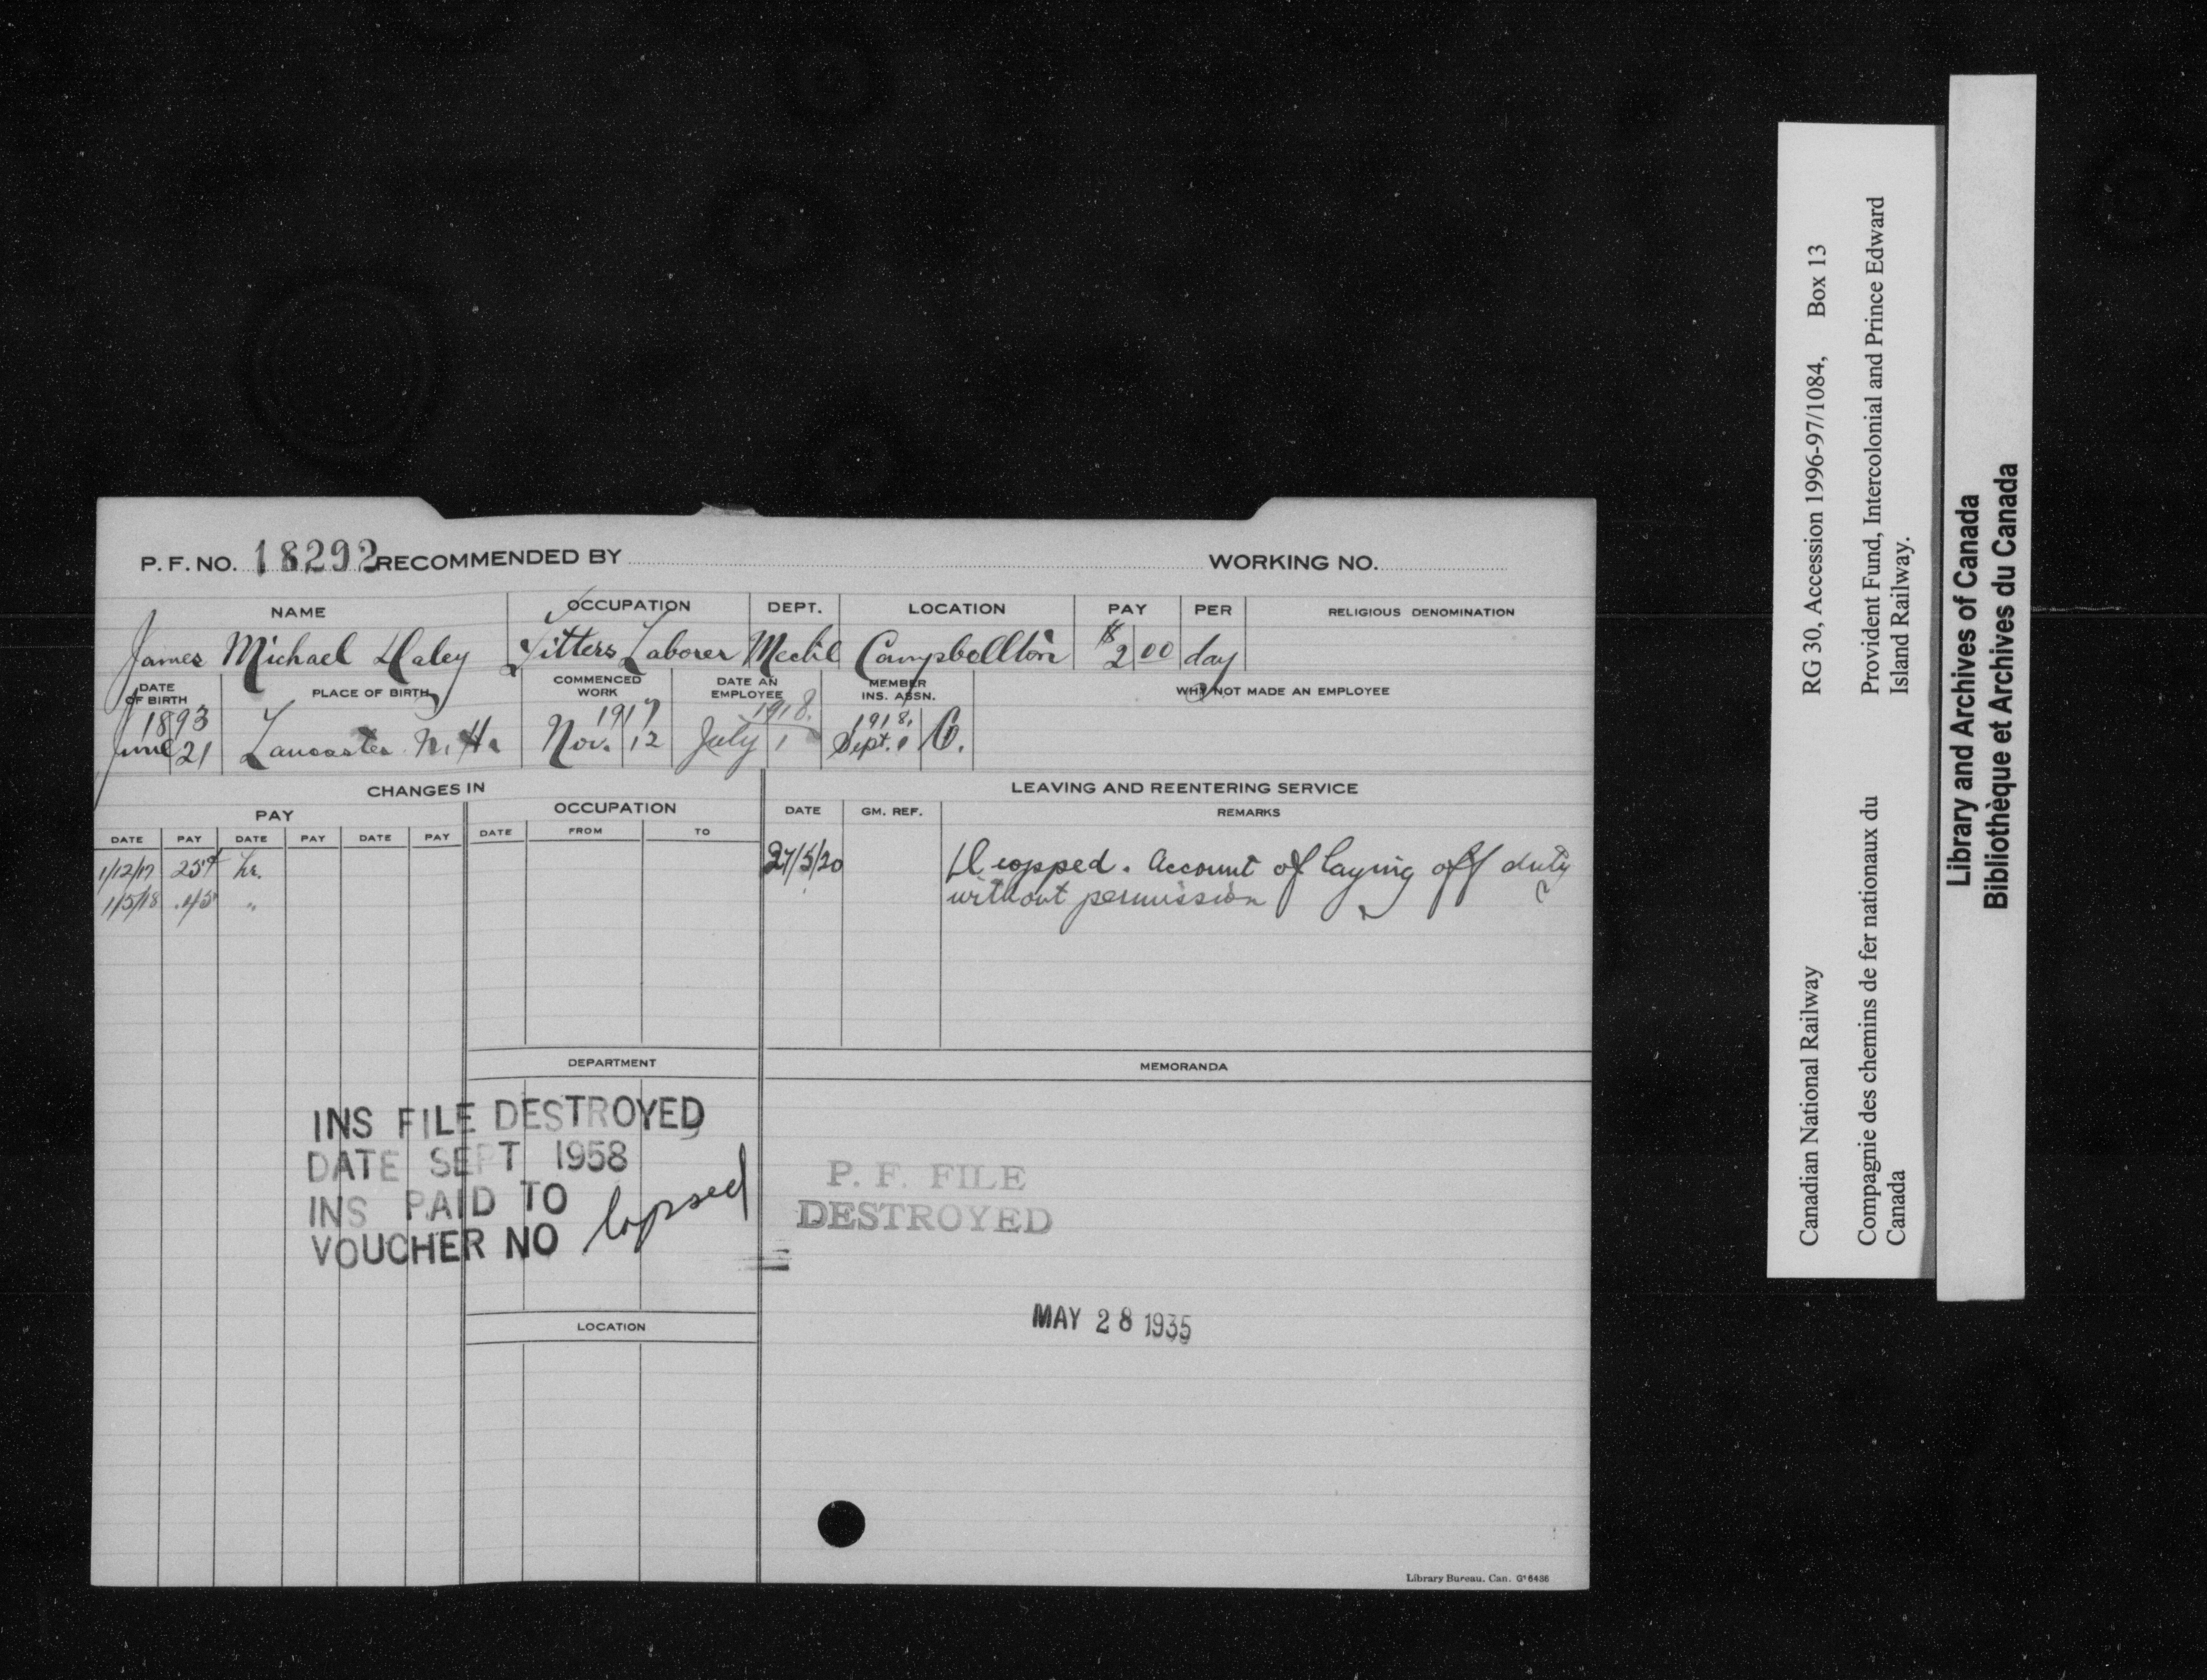 P. F. NO. 18292 RECOMMENDED BY WORKING NO.
NAME OCCUPATION DEPT. LOCATION PAY PER RELIGIOUS DENOMINATION
James Michael Daley Fitters Laborer Mechl Campbellton $2 00 day
DATE OF BIRTH PLACE OF BIRTH COMMENCED WORK DATE AN EMPLOYEE MEMBER INS. ASSN. WHY NOT MADE AN EMPLOYEE
1893 1917 1918. 1918.
June 21 Lancaster N. H. Nov. 12 July 1 Sept. 1 C.
CHANGES IN LEAVING AND REENTERING SERVICE
PAY OCCUPATION DATE GM. REF. REMARKS
DATE PAY DATE PAY DATE PAY DATE FROM TO
1/12/17 25¢ hr. 27/5/20 Dropped. Account of laying off duty
1/5/18 .45 " without permission
DEPARTMENT MEMORANDA
INS FILE DESTROYED
DATE SEPT 1958
INS PAID TO
VOUCHER NO lapsed
P. F. FILE
DESTROYED
MAY 28 1935
LOCATION
Library Bureau. Can.
Canadian National Railway RG 30, Accession 1996-97/1084, Box 13
Compagnie des chemins de fer nationaux du Provident Fund, Intercolonial and Prince Edward
Canada Island Railway.
Library and Archives of Canada
Bibliothèque et Archives du Canada